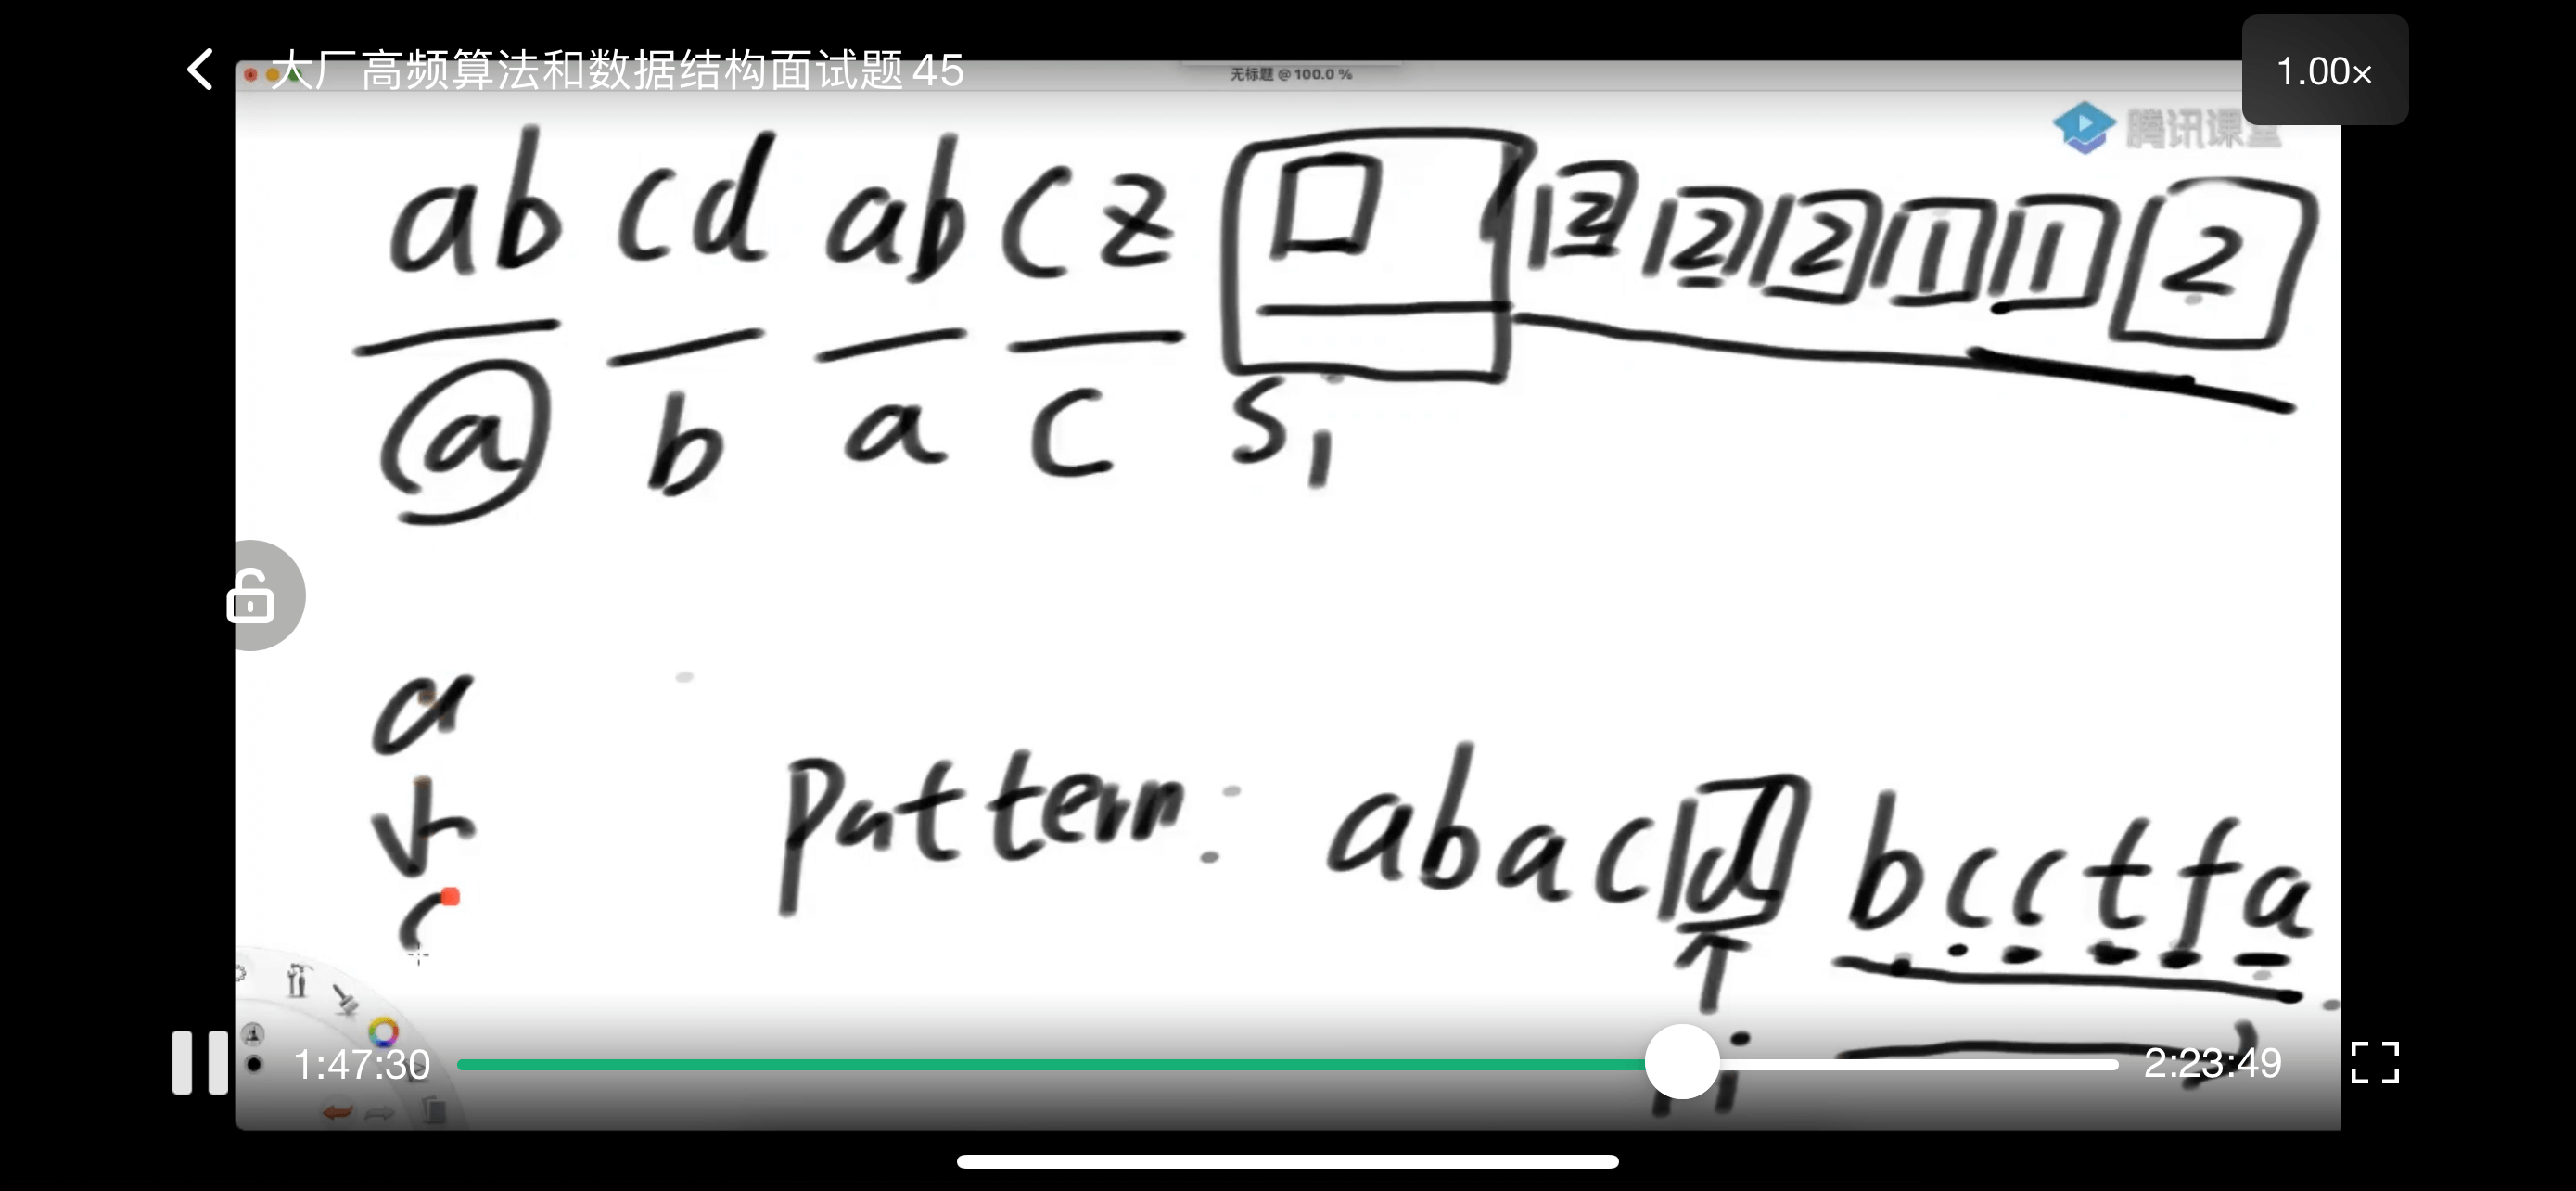 大厂高频算法和数据结构面试题45
1.00×
无标题 @ 100.0 %
腾讯课堂
ab cd ab cz 2 2 2 1 1 2
a b a c s1
a
b
c
pattern: abacd bcctfa
i
1:47:30
2:23:49